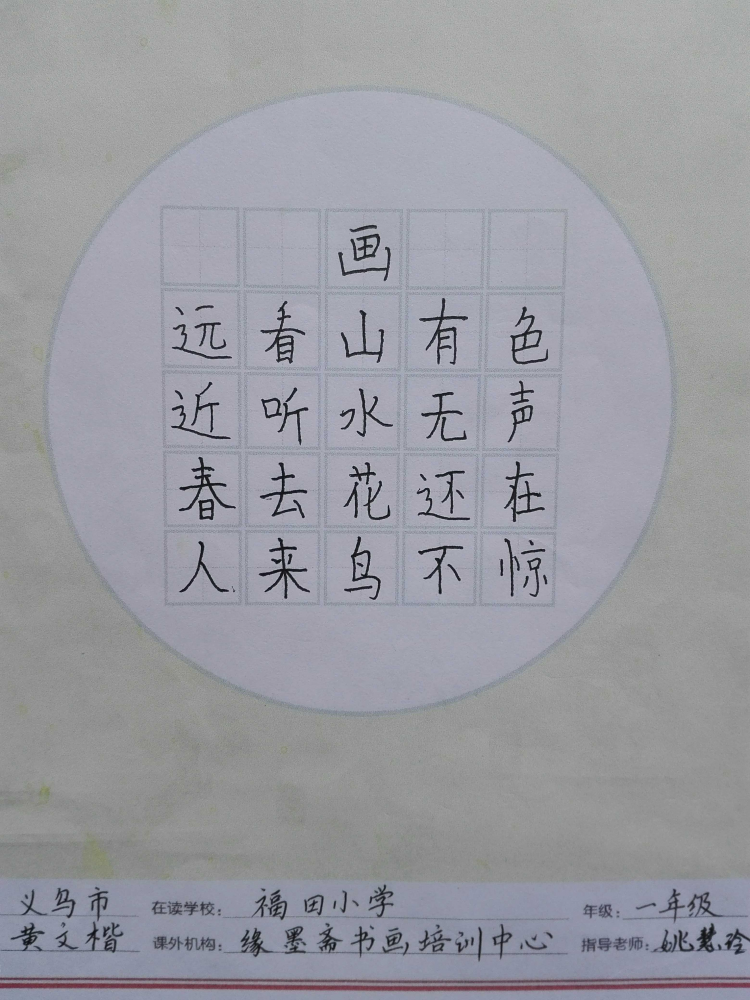 画
远看山有色
近听水无声
春去花还在
人来鸟不惊
义乌市 在读学校: 福田小学 年级: 一年级
黄文楷 课外机构: 缘墨斋书画培训中心 指导老师: 姚慧玲